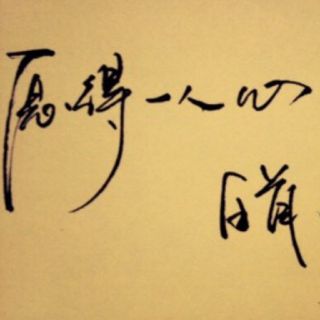 愿得一人心
白首